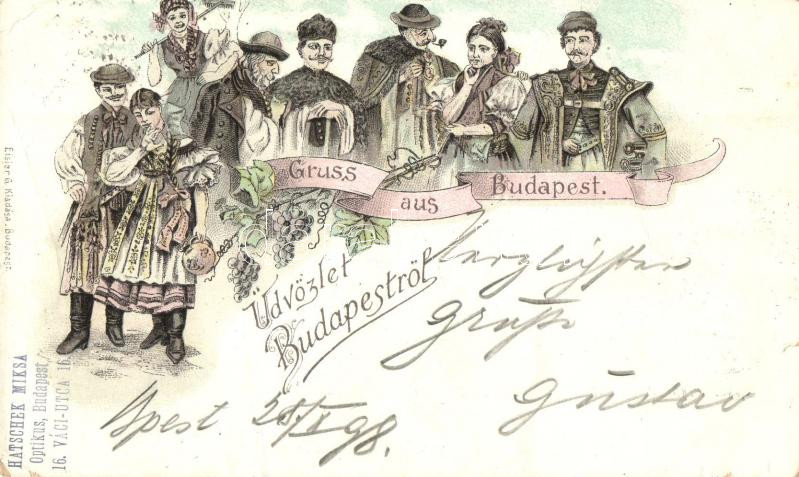 Gruss aus Budapest.
Üdvözlet
Budapestről
Herzlichsten
Gruß
Gustav
Bpest 28/X 98.
Eisler G. Kiadása, Budapest.
HATSCHEK MIKSA
Optikus, Budapest,
16. VÁCI-UTCA 16.